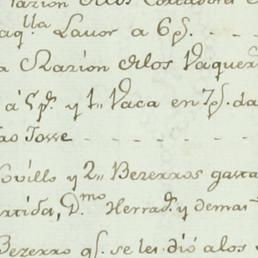 Razion álos Cortadores
aq.lla Lavor a 6 p.s
a Razion álos Vaquer
á 5 p.s y 1,, Vaca en 7 p.s da
Jose
ovillo y 2,, Bezerros gasta
artida, D.mo Herrad.s y demas
Bezerro q.e se les dió a los